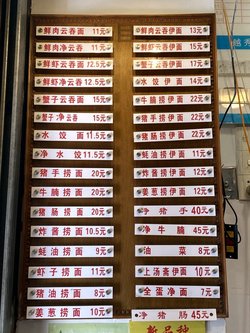 鲜肉云吞面 11元
鲜肉净云吞 11元
鲜虾云吞面 12.5元
鲜虾净云吞 12.5元
蟹子云吞面 15元
蟹子净云吞 15元
水饺面 11.5元
净水饺 11.5元
猪手捞面 20元
牛腩捞面 20元
猪肠捞面 20元
炸酱捞面 10.5元
蚝油捞面 9元
虾子捞面 11元
猪油捞面 8元
姜葱捞面 10元
鲜肉云吞伊面 13元
鲜虾云吞伊面
蟹子云吞伊面
水饺伊面 14元
牛腩伊面 22元
猪手伊面 22元
猪肠伊面 22元
蚝油伊面 11元
炸酱伊面 12元
姜葱伊面 12元
净猪手 40元
净牛腩 45元
油菜 8元
上汤斋伊面 10元
全蛋净面 7元
净猪肠 45元
新品种